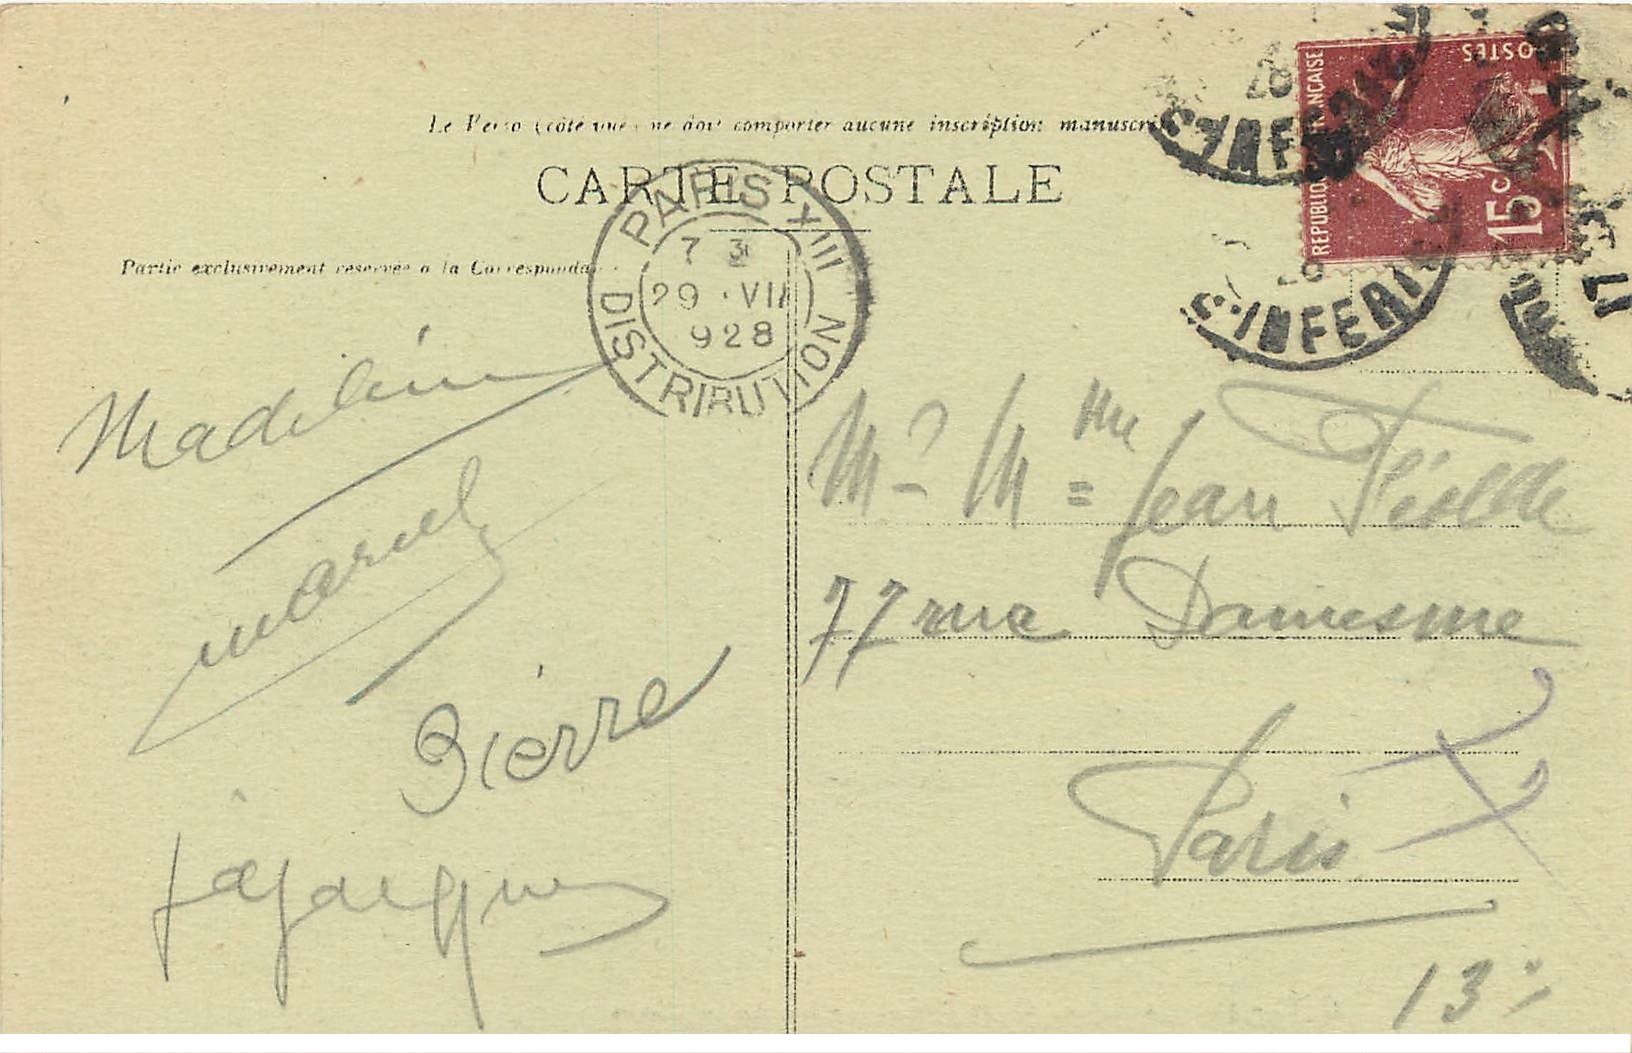 Le Verso (côté vue) ne doit comporter aucune inscription manuscri
CARTE POSTALE
Partie exclusivement réservée à la Correspondan
PARIS XIII
7 3
29 · VII
928
DISTRIBUTION
REPUBLIQUE FRANÇAISE
POSTES
15c
28
INFER
28
S.INFERI
17
Madeleine
Marcel
Pierre
Jacques
Mr Mme Jean
77 rue Damesme
Paris
13e